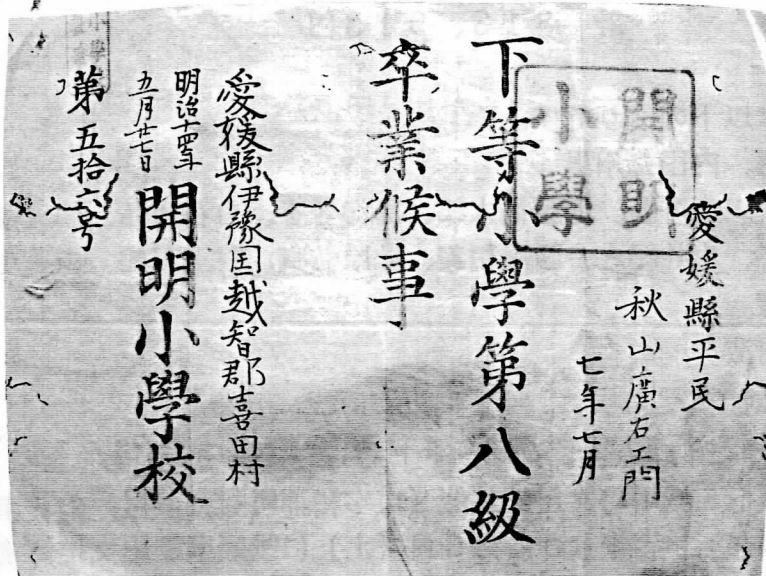 愛媛縣平民
秋山廣右エ門
七年七月
開明
小學
下等小學第八級
卒業候事
愛媛縣伊豫国越智郡喜田村
明治十四年
五月廿七日
開明小學校
第五拾六号